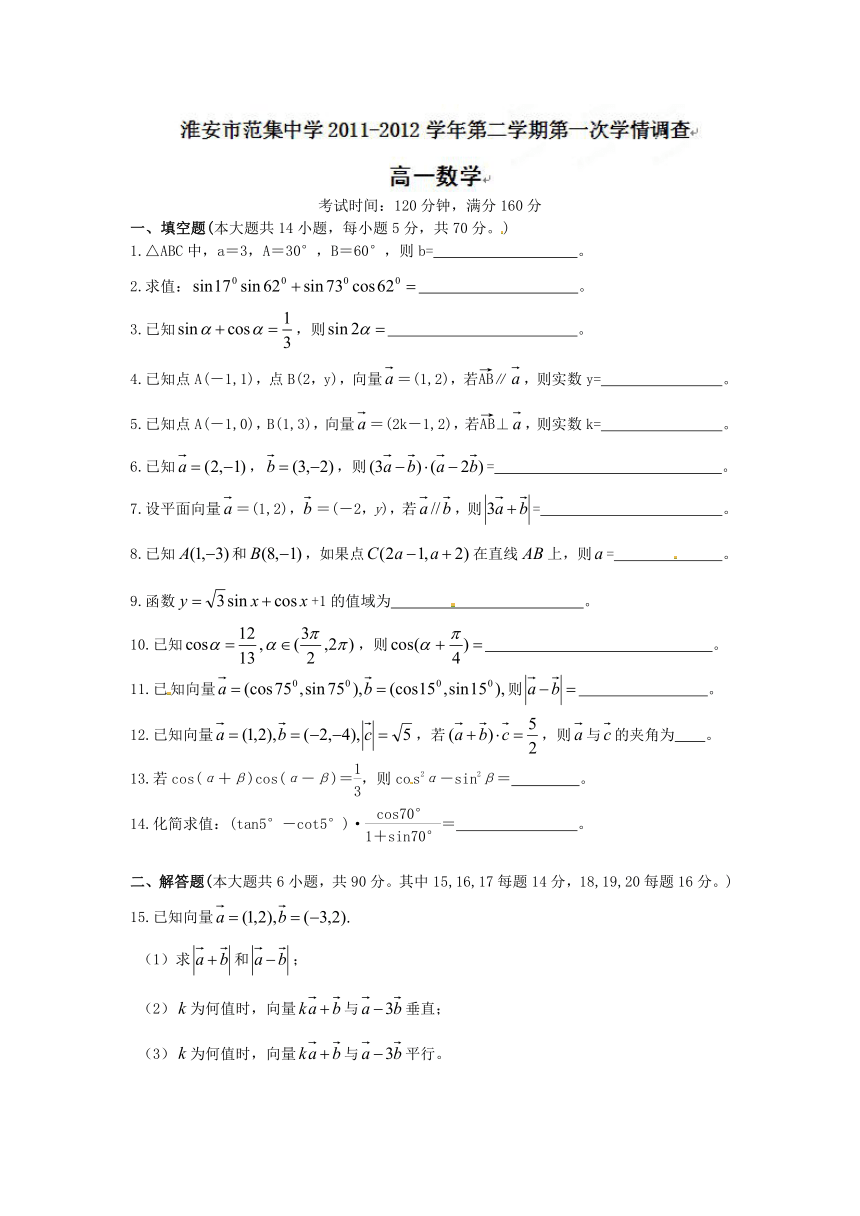 淮安市范集中学2011-2012学年第二学期第一次学情调查
高一数学
考试时间：120分钟，满分160分
一、填空题(本大题共14小题，每小题5分，共70分。)
1.△ABC中，a＝3，A＝30°，B＝60°，则b=________。
2.求值：sin17⁰sin62⁰+sin73⁰cos62⁰=________。
3.已知sinα+cosα=1/3，则sin2α=________。
4.已知点A(－1,1)，点B(2，y)，向量a⃗＝(1,2)，若AB⃗∥a⃗，则实数y=________。
5.已知点A(－1,0)，B(1,3)，向量a⃗＝(2k－1,2)，若AB⃗⊥a⃗，则实数k=________。
6.已知a⃗=(2,−1)，b⃗=(3,−2)，则(3a⃗−b⃗)·(a⃗−2b⃗)=________。
7.设平面向量a⃗＝(1,2)，b⃗＝(－2，y)，若a⃗//b⃗，则|3a⃗+b⃗|=________。
8.已知A(1,−3)和B(8,−1)，如果点C(2a−1,a+2)在直线AB上，则a=________。
9.函数y=√3sinx+cosx+1的值域为________。
10.已知cosα=12/13,α∈(3π/2,2π)，则cos(α+π/4)=________。
11.已知向量a⃗=(cos75⁰,sin75⁰),b⃗=(cos15⁰,sin15⁰),则|a⃗−b⃗|=________。
12.已知向量a⃗=(1,2),b⃗=(−2,−4),|c⃗|=√5，若(a⃗+b⃗)·c⃗=5/2，则a⃗与c⃗的夹角为____。
13.若cos(α＋β)cos(α－β)＝1/3，则cos²α－sin²β＝________。
14.化简求值：(tan5°－cot5°)·cos70°/(1＋sin70°)＝________。
二、解答题(本大题共6小题，共90分。其中15,16,17每题14分，18,19,20每题16分。)
15.已知向量a⃗=(1,2),b⃗=(−3,2).
（1）求|a⃗+b⃗|和|a⃗−b⃗|；
（2）k为何值时，向量ka⃗+b⃗与a⃗−3b⃗垂直；
（3）k为何值时，向量ka⃗+b⃗与a⃗−3b⃗平行。